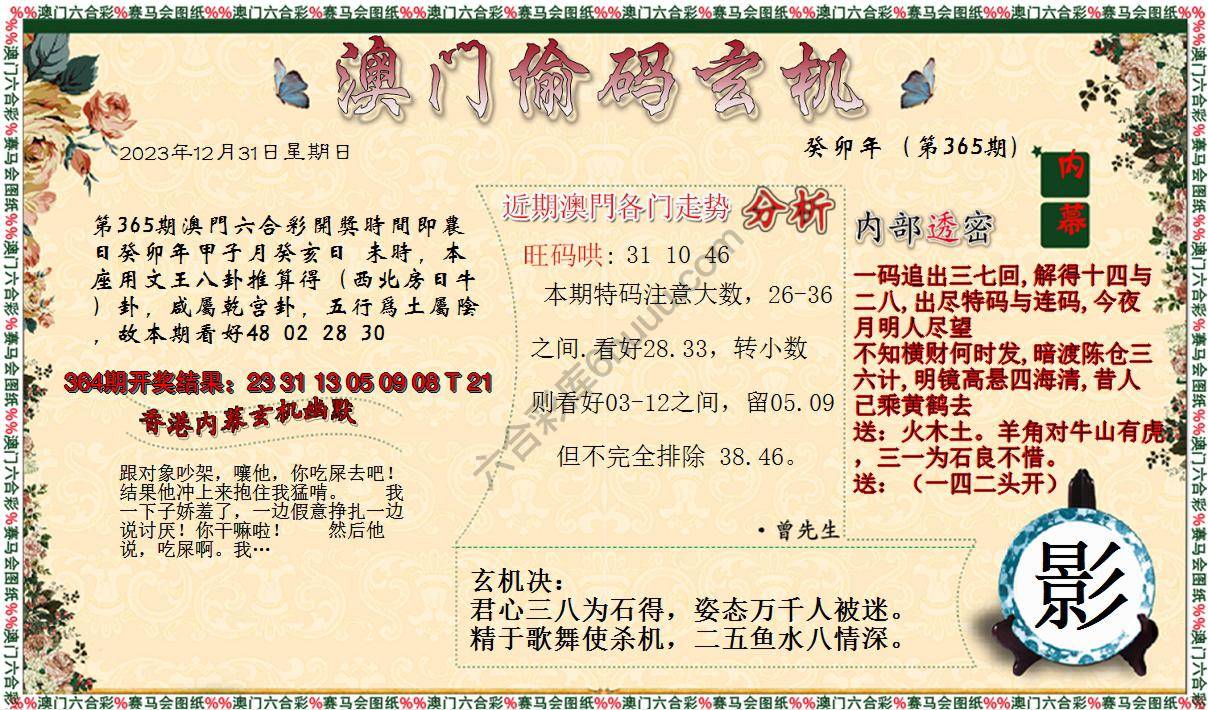 %%澳门六合彩%赛马会图纸%%澳门六合彩%赛马会图纸%%澳门六合彩%赛马会图纸%%澳门六合彩%赛马会图纸%%澳门六合彩%赛马会图纸%%澳门六合彩%赛马会图纸%%
澳门偷码玄机
2023年12月31日星期日
癸卯年（第365期）
内
幕
第365期澳門六合彩開獎時間即農
日癸卯年甲子月癸亥日 未時，本
座用文王八卦推算得（西北房日牛
）卦，咸屬乾宫卦，五行爲土屬陰
，故本期看好48 02 28 30
364期开奖结果：23 31 13 05 09 08 T 21
香港内幕玄机幽默
跟对象吵架，嚷他，你吃屎去吧！
结果他冲上来抱住我猛啃。 我
一下子娇羞了，一边假意挣扎一边
说讨厌！你干嘛啦！ 然后他
说，吃屎啊。我…
近期澳門各门走势 分析
旺码哄: 31 10 46
本期特码注意大数，26-36
之间.看好28.33，转小数
则看好03-12之间，留05.09
但不完全排除 38.46。
·曾先生
内部透密
一码追出三七回,解得十四与
二八,出尽特码与连码,今夜
月明人尽望
不知横财何时发,暗渡陈仓三
六计,明镜高悬四海清,昔人
已乘黄鹤去
送：火木土。羊角对牛山有虎
，三一为石良不惜。
送：（一四二头开）
玄机决：
君心三八为石得，姿态万千人被迷。
精于歌舞使杀机，二五鱼水八情深。
影
%%澳门六合彩%赛马会图纸%%澳门六合彩%赛马会图纸%%澳门六合彩%赛马会图纸%%澳门六合彩%赛马会图纸%%澳门六合彩%赛马会图纸%%澳门六合彩%赛马会图纸%%